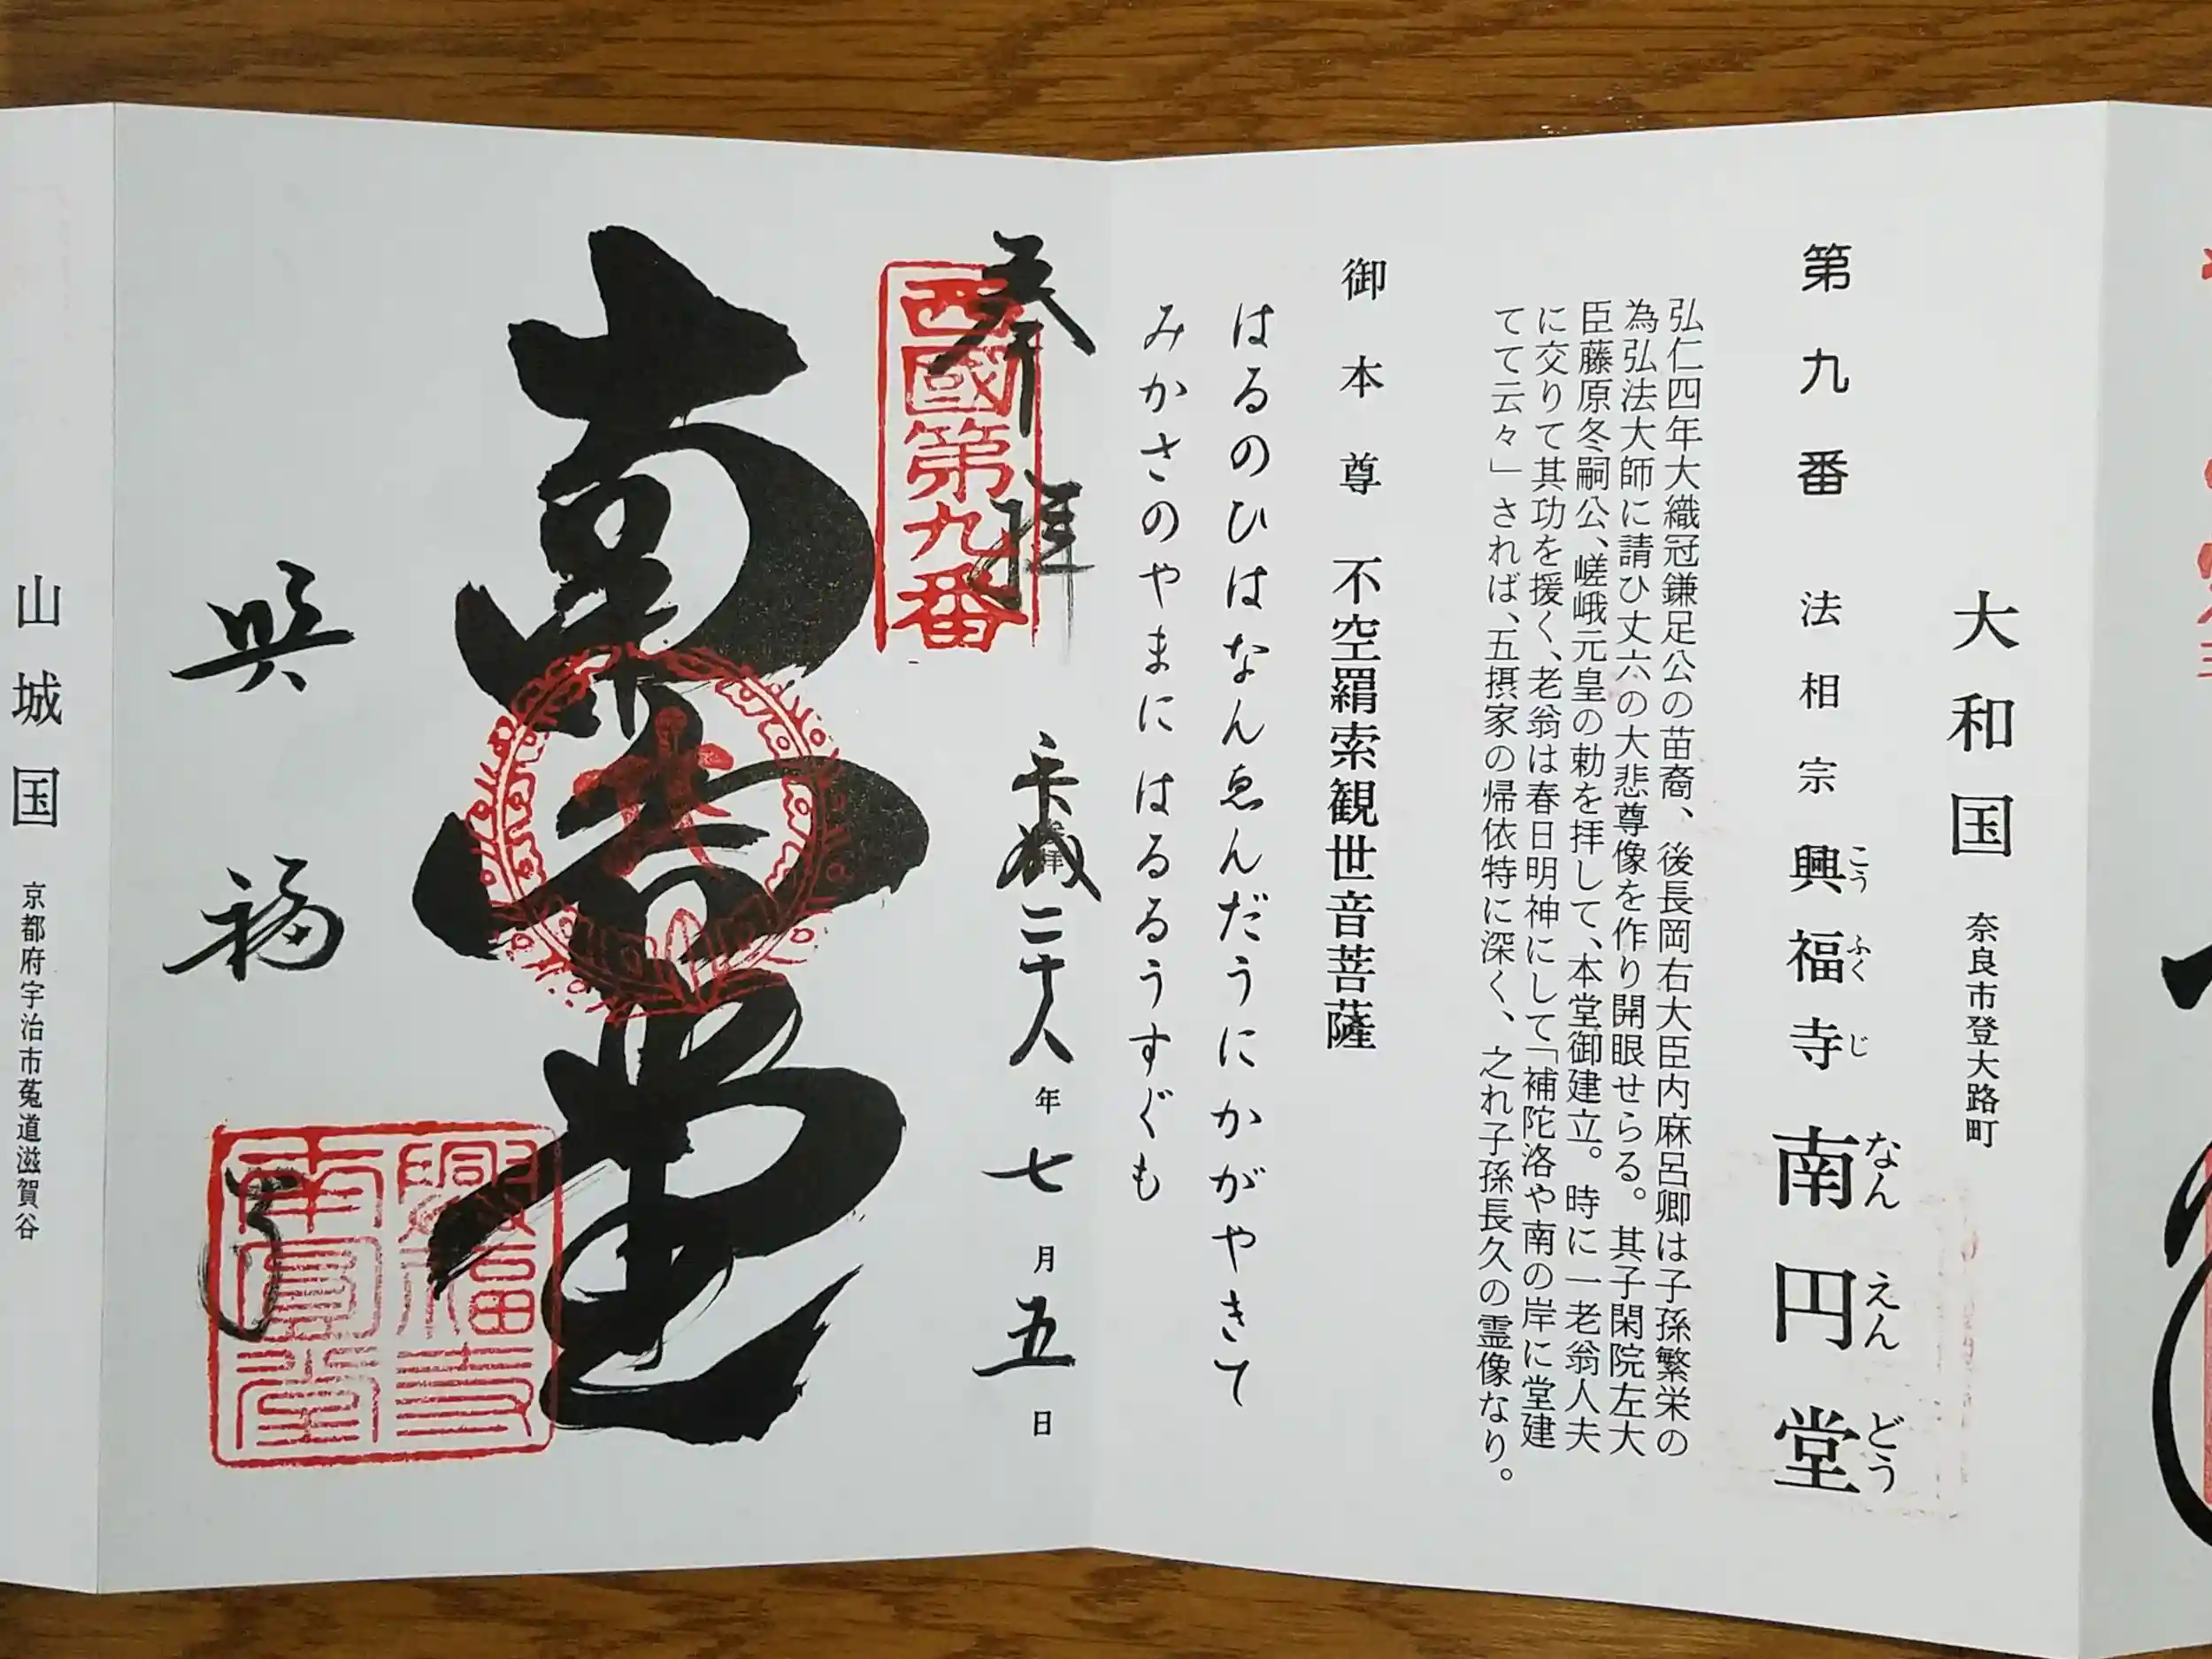 大和国 奈良市登大路町
第九番 法相宗 興福寺 南円堂
こうふくじ なんえんどう
弘仁四年大織冠鎌足公の苗裔、後長岡右大臣内麻呂卿は子孫繁栄の
為弘法大師に請ひ丈六の大悲尊像を作り開眼せらる。其子閑院左大
臣藤原冬嗣公、嵯峨元皇の勅を拝して、本堂御建立。時に一老翁人夫
に交りて其功を援く、老翁は春日明神にして「補陀洛や南の岸に堂建
てて云々」されば、五摂家の帰依特に深く、之れ子孫長久の霊像なり。
御本尊 不空羂索観世音菩薩
はるのひはなんゑんだうにかがやきて
みかさのやまにはるるうすぐも
奉拝
平成二十八年七月五日
西國第九番
南円堂
興福寺
興福寺
南圓堂
山城国 京都府宇治市菟道滋賀谷